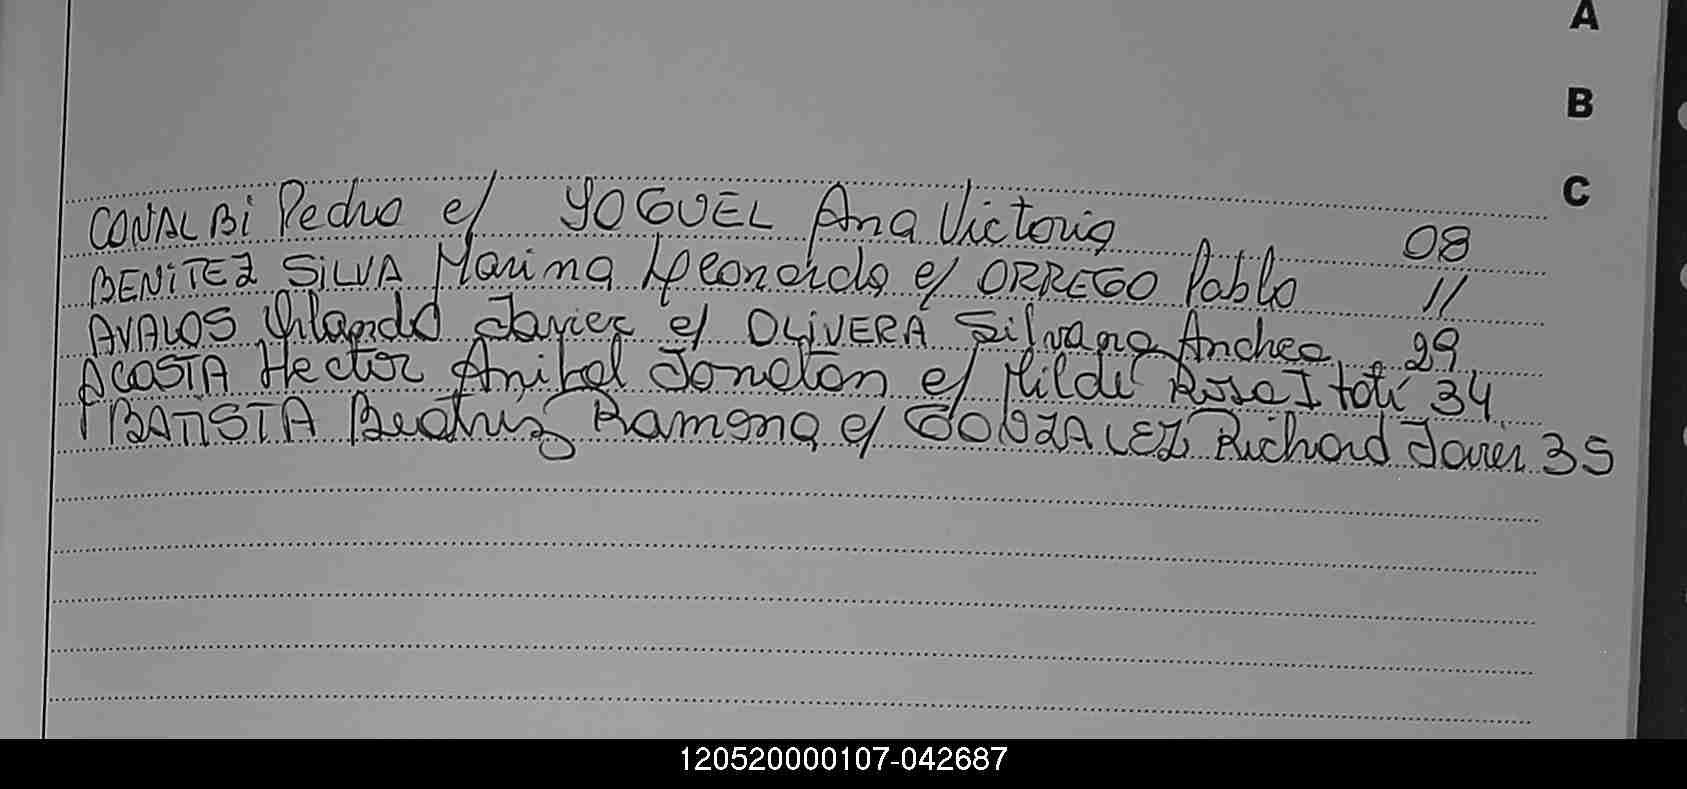 A
B
C
CONALBI Pedro e/ YOGUEL Ana Victoria 08
BENITEZ SILVA Marina Leonarda e/ ORREGO Pablo 11
AVALOS Orlando Javier e/ OLIVERA Silvana Andrea 29
ACOSTA Hector Anibal Jonatan e/ Hilda Rosa Itati 34
BATISTA Beatriz Ramona e/ GONZALEZ Richard Javier 35
120520000107-042687